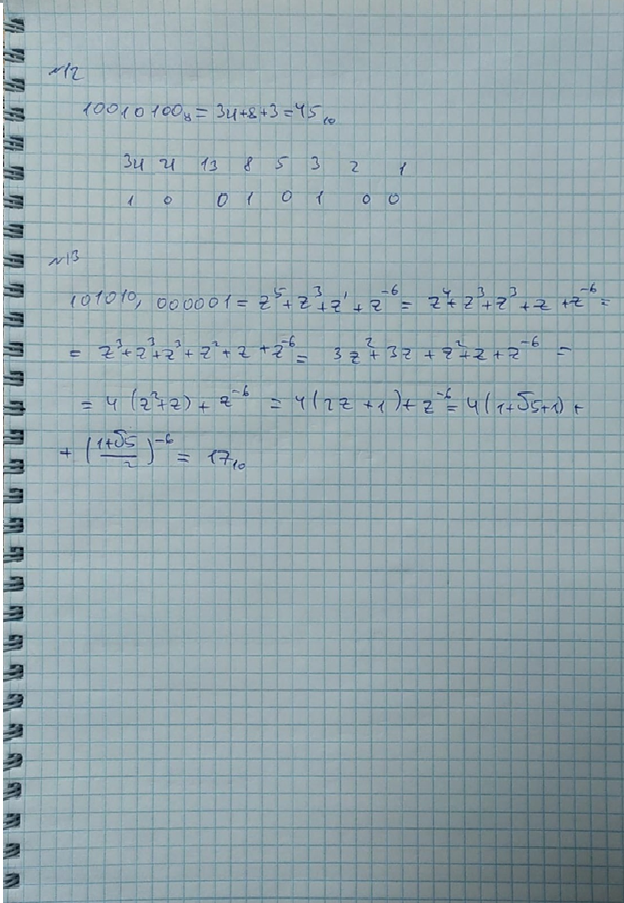 №12
10010100₈ = 34+8+3=45₁₀
34 21 13 8 5 3 2 1
1 0 0 1 0 1 0 0
№13
101010, 000001 = z⁵+z³+z¹+z⁻⁶ = z⁴+z³+z³+z+z⁻⁶ =
= z³+z³+z³+z²+z+z⁻⁶ = 3z²+3z+z²+z+z⁻⁶ =
= 4(z²+z)+z⁻⁶ = 4(2z+1)+z⁻⁶ = 4(1+√5+1)+
+ ((1+√5)/2)⁻⁶ = 17₁₀